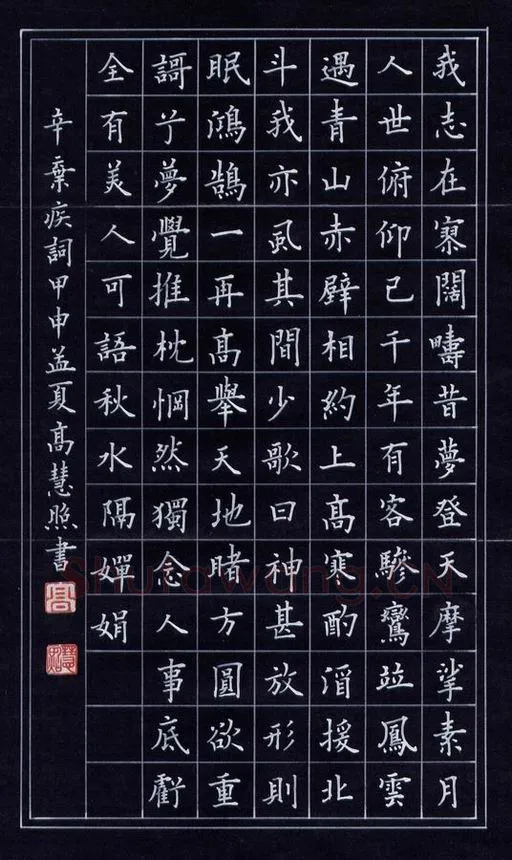 我志在寥闊疇昔夢登天摩挲素月
人世俯仰已千年有客驂鸞竝鳳雲
遇青山赤壁相約上髙寒酌酒援北
斗我亦虱其間少歌曰神甚放形則
眠鴻鵠一再髙舉天地睹方圓欲重
謌兮夢覺推枕惘然獨念人事底虧
全有美人可語秋水隔嬋娟
辛棄疾詞甲申益夏髙慧照書
高
Shufawang.CN